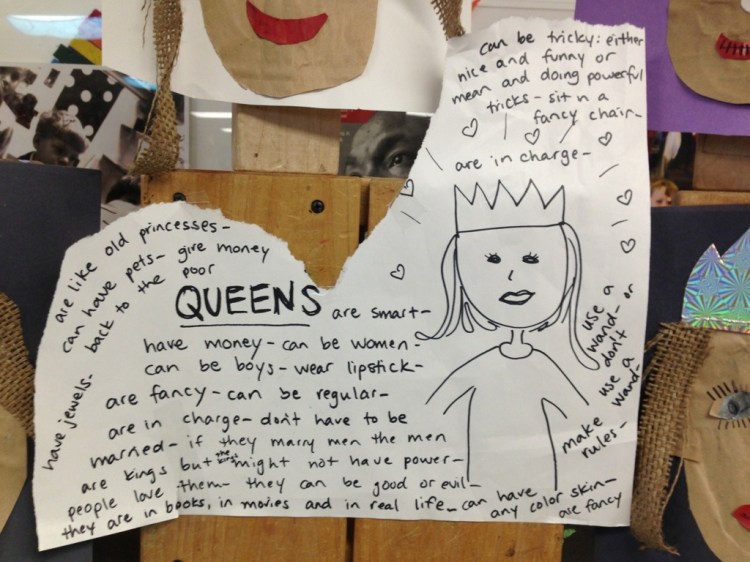 can be tricky: either
nice and funny or
mean and doing powerful
tricks - sit in a
fancy chair -
are in charge -
have jewels -
are like old princesses -
can have pets - give money
back to the poor
QUEENS are smart -
have money - can be women -
can be boys - wear lipstick -
are fancy - can be regular -
are in charge - don't have to be
married - if they marry men the men
are kings but the kings might not have power -
people love them - they can be good or evil -
they are in books, in movies and in real life - can have
any color skin -
are fancy
use a
wand - or
don't
use a
wand -
make
rules -